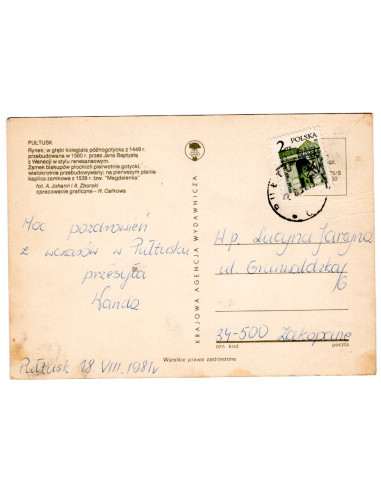 PUŁTUSK
Rynek; w głębi kolegiata późnogotycka z 1449 r.
przebudowana w 1560 r. przez Jana Baptystę
z Wenecji w stylu renesansowym.
Zamek biskupów płockich pierwotnie gotycki,
wielokrotnie przebudowywany; na pierwszym planie
kaplica zamkowa z 1538 r. tzw. "Magdalenka"
fot. A. Johann i A. Zborski
opracowanie graficzne – H. Całkowa
Moc pozdrowień
z wczasów w Pułtusku
przesyła
Wanda
Pułtusk 18 VIII. 1981r
KRAJOWA AGENCJA WYDAWNICZA
2 ZŁ
POLSKA
W.p. Lucyna Jarzyna
ul. Grunwaldzka
34-500 Zakopane
ozn. kod.
poczta
Wszelkie prawa zastrzeżone